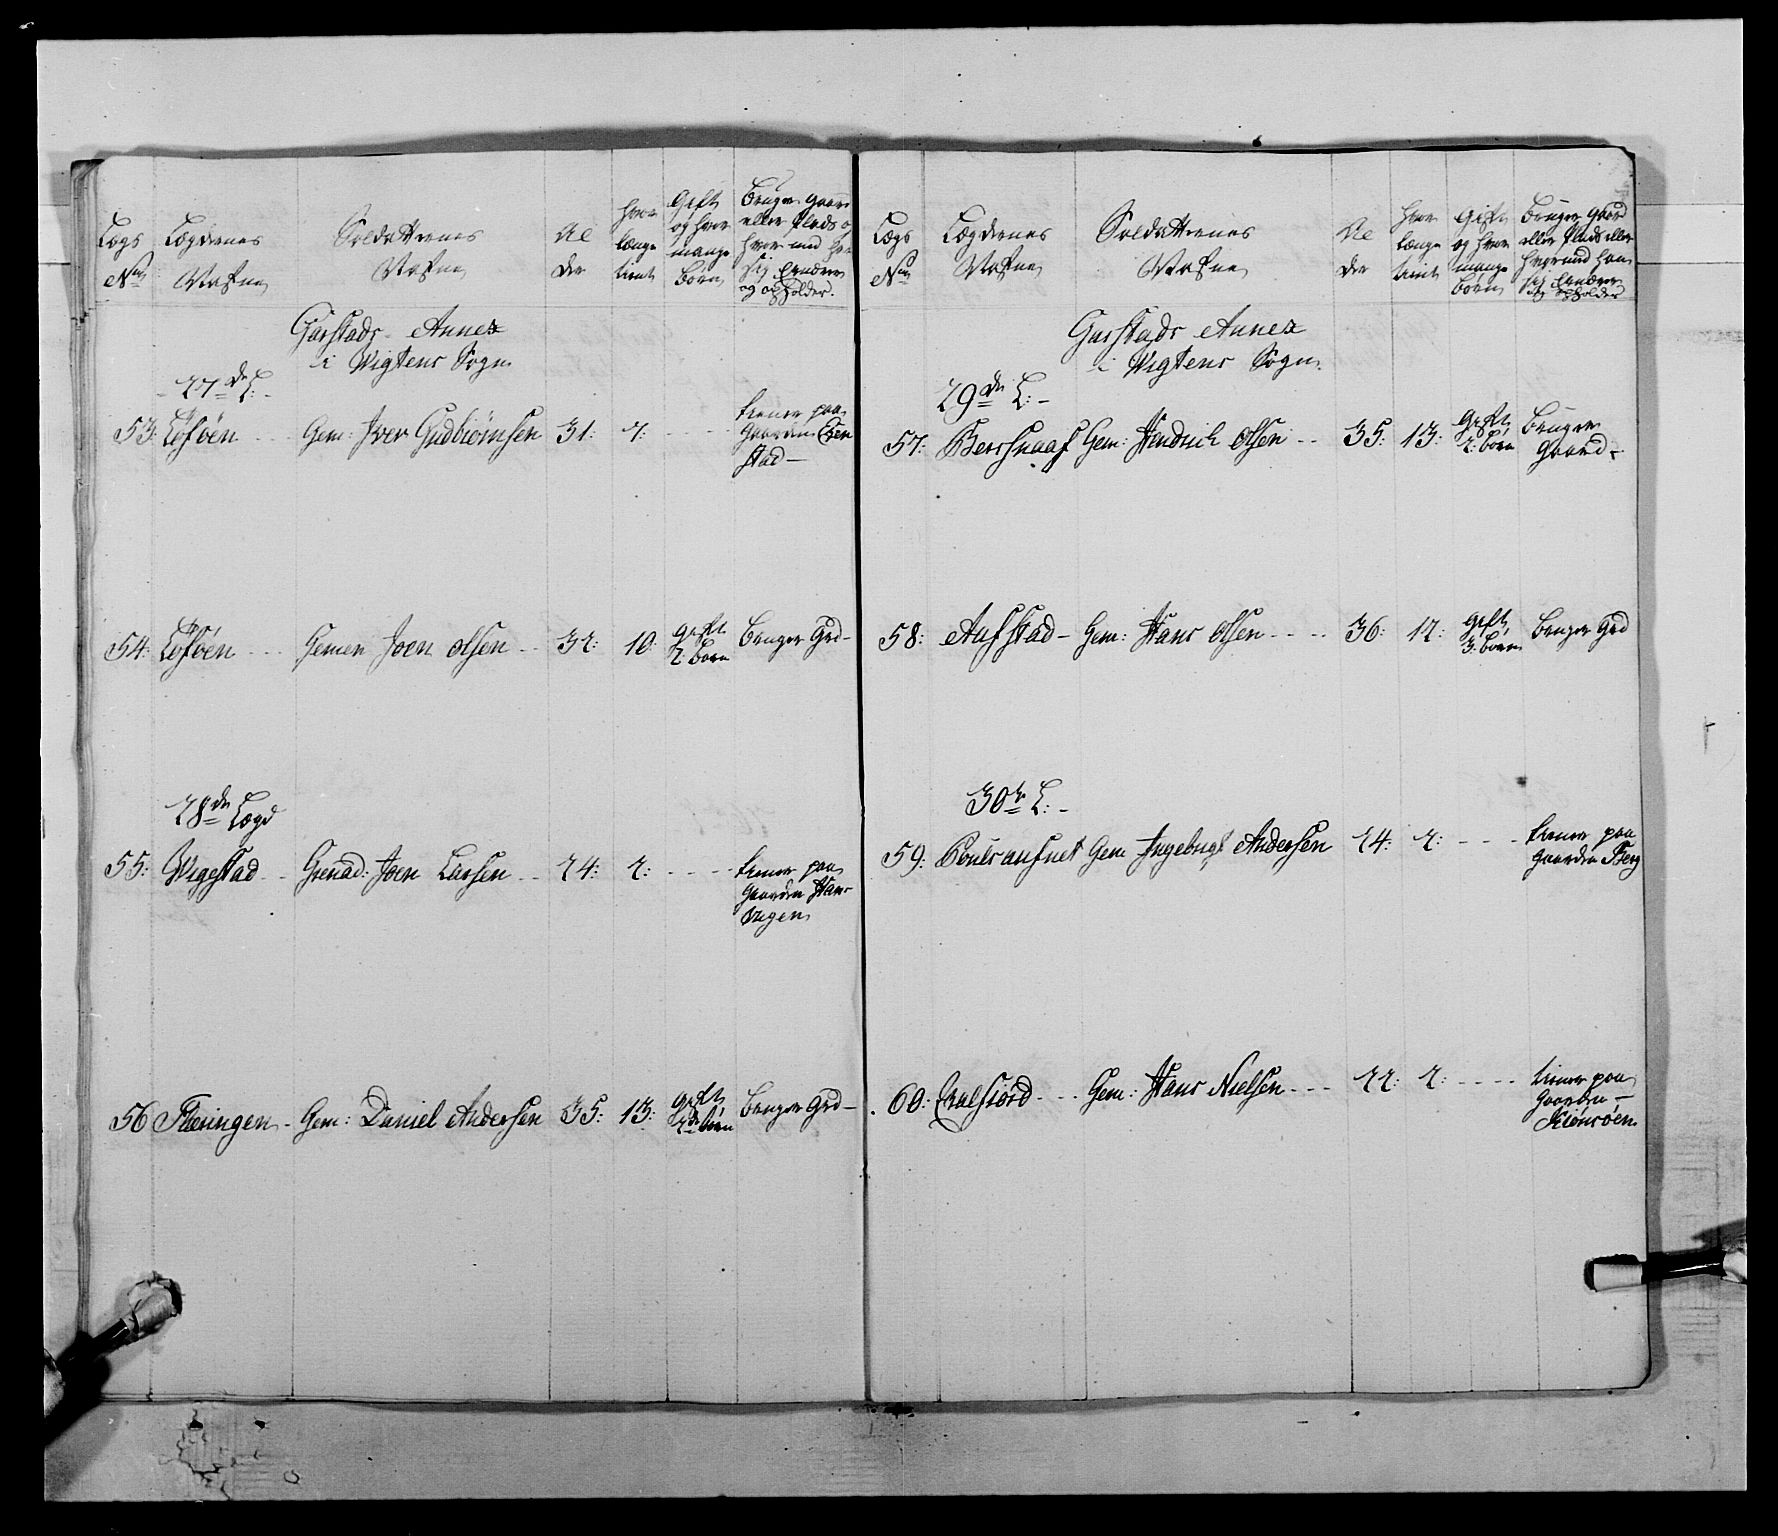 Lægs
No
Lægdernes
Nafne
Soldatternes
Nafne
Al
der
hvor
længe
tient
Gift
og hvor
mange
børn
Bruger Gaard
eller Plads og
hvormed han
sig Ernærer
og opholder.
Garstads Annex
i Vigtens Sogn
27de L:
53: Løføen Gem: Iver Gudbiørnsen 31: 7:
tiener paa
Gaarden Even
stad
54: Løføen Gemen Joen Olsen 32: 10:
Gift
2: børn
bruger Grd
28de Lægd
55: Wigestad Grenad: Joen Larsen 24: 2:
tiener paa
Gaarden Hans
Vigen
56 Flæringen Gem: Daniel Andersen 35: 13:
Gift
2de børn
bruger Grd
Lægs
No
Lægdernes
Nafne
Soldatternes
Nafne
Al
der
hvor
længe
tient
Gift
og hvor
mange
børn
Bruger Gaard
eller Plads eller
hvormed han
sig Ernærer
og opholder
Garstads Annex
i Vigtens Sogn
29de L:
57: Gem: Hendrich Olsen 35: 13:
Gift
2: børn
Bruger
Gaard
58: Aufstad Gem: Hans Olsen 36: 12:
Gift
3: børn
bruger Grd
30te L:
59: Gem Ingebrigt Andersen 24: 2:
tiener paa
Gaarden Berg
60: Gem: Hans Nielsen 22: 2:
tiener paa
Gaarden